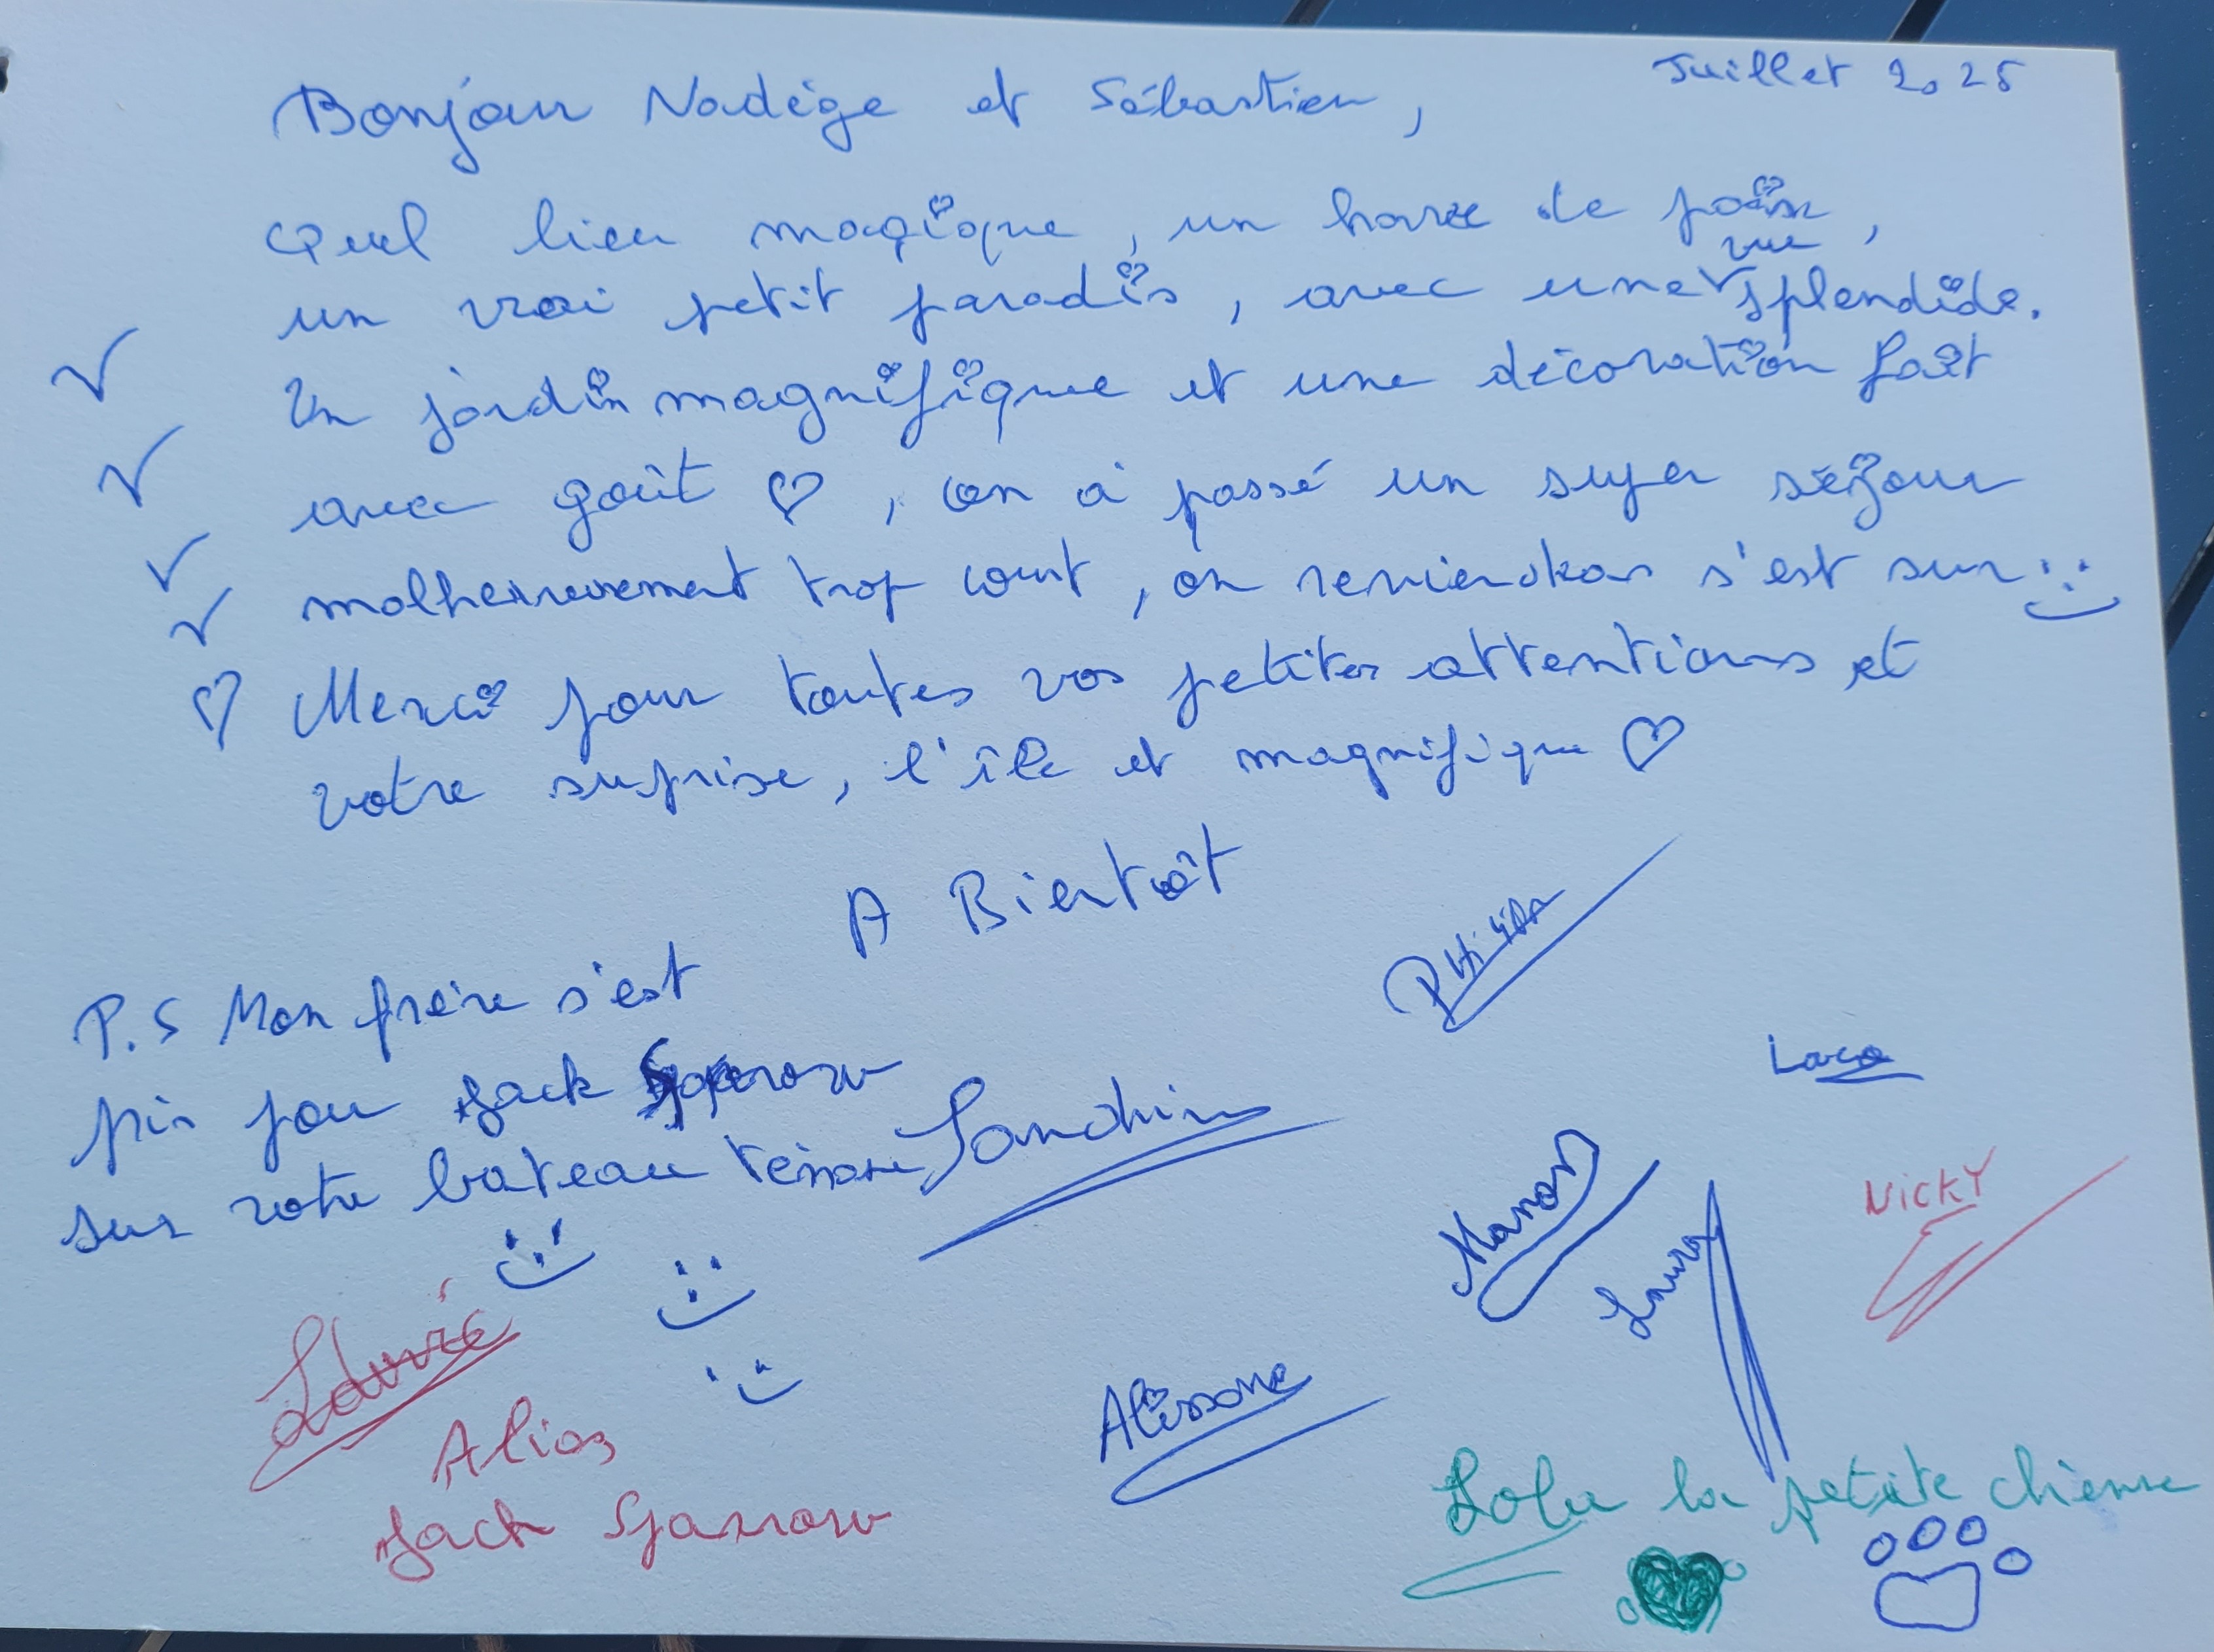 Juillet 2025
Bonjour Nadège et Sébastien,
Quel lieu magique, un havre de paix,
un vrai petit paradis, avec une vue splendide.
Un jardin magnifique et une décoration fait
avec goût ♡, on à passé un super séjour
malheureusement trop court, on reviendras s'est sur
Merci pour toutes vos petites attentions et
votre surprise, l'île et magnifique ♡
A Bientôt
P.S Mon frère s'est
pris pour Jack Sparrow
sur votre bateau
Sandrine
Manon
Laura
NICKY
Alissone
Alias
Jack Sparrow
Lola la petite chienne